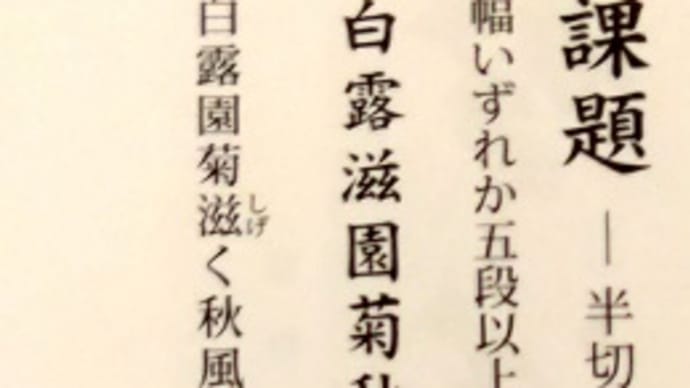 課題―半切
幅いずれか五段以上
白露滋園菊秋
白露園菊滋く秋風
しげ